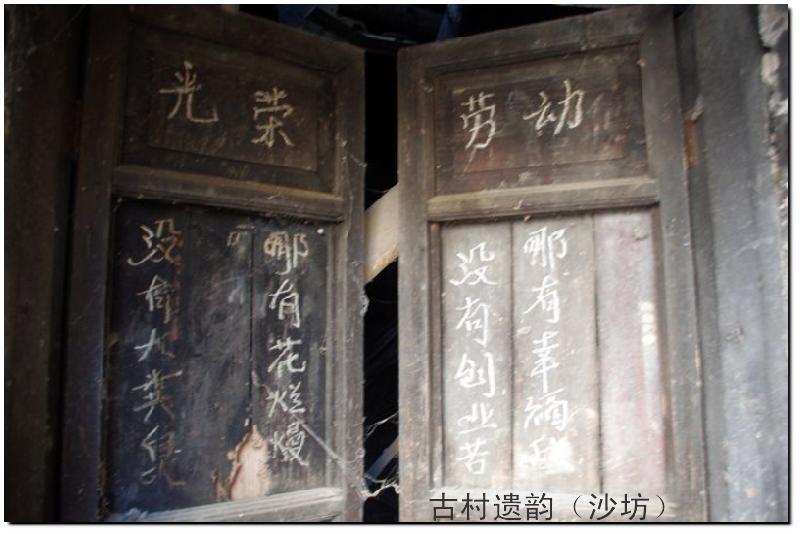 光荣
劳动
没有大粪臭
哪有花烂熳
没有创业苦
哪有幸福甜
古村遗韵（沙坊）